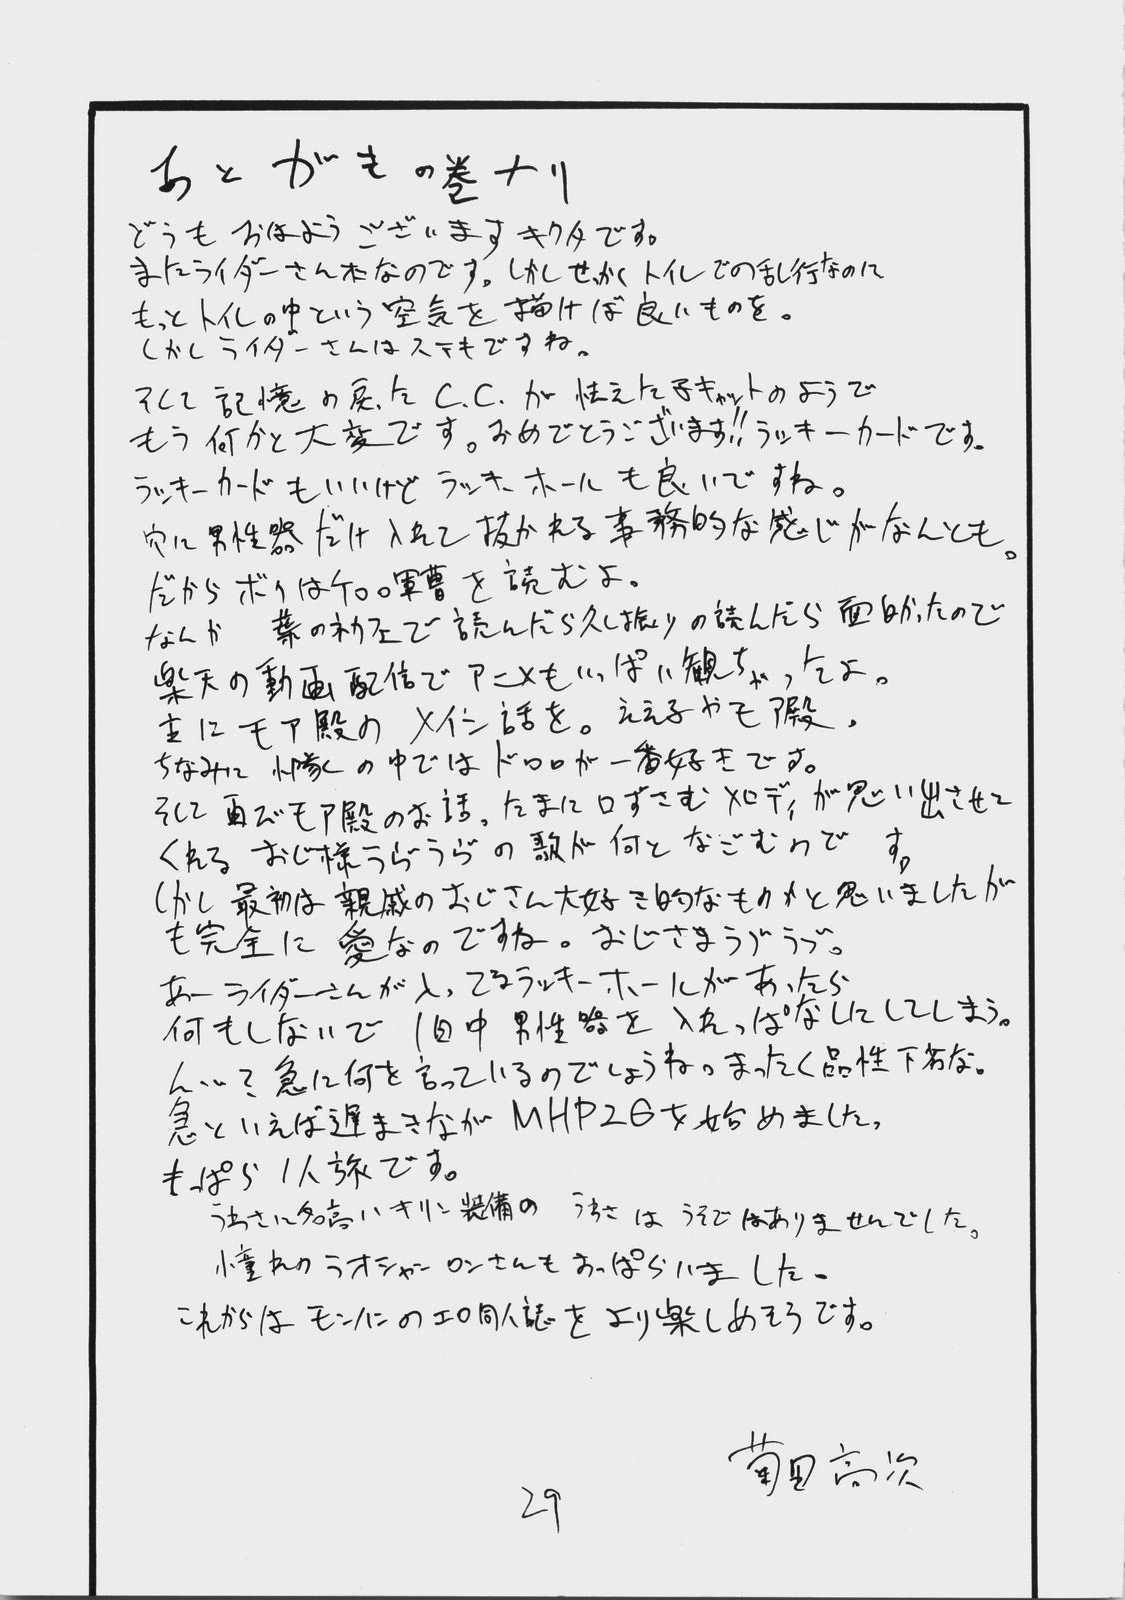 あとがきの巻ナリ
どうもおはようございますキクタです。
またライダーさん本なのです。しかしせっかくトイレでの乱行なのに
もっとトイレの中という空気を描けば良いものを。
しかしライダーさんはステキですね。
そして記憶の戻ったC.C.が怯えた子キャットのようで
もう何かと大変です。おめでとうございます!!ラッキーカードです。
ラッキーカードもいいけどラッキーホールも良いですね。
穴に男性器だけ入れて抜かれる事務的な感じがなんとも。
だからボクはケロロ軍曹を読むよ。
なんか で読んだら久し振りの読んだら面白かったので
楽天の動画配信でアニメもいっぱい観ちゃったよ。
主にモア殿のメイン話を。ええ子やモア殿。
ちなみに小隊の中ではドロロが一番好きです。
そして再びモア殿のお話。たまに口ずさむメロディが思い出させて
くれるおじ様らぶらぶの歌が何となごむわです。
しかし最初は親戚のおじさん大好き的なものかと思いましたが
も完全に愛なのですね。おじさまラブラブ。
あーライダーさんが入ってるラッキーホールがあったら
何もしないで1日中男性器を入れっぱなしにしてしまう。
ん…?急に何を言っているのでしょうね。まったく品性下劣な。
急といえば遅まきながMHP2Gを始めました。
もっぱら1人旅です。
うわさに名高いキリン装備のうわさはうそではありませんでした。
憧れのラオシャンロンさんもおっぱらいました。
これからはモンハンのエロ同人誌をより楽しめそうです。
菊田高次
29